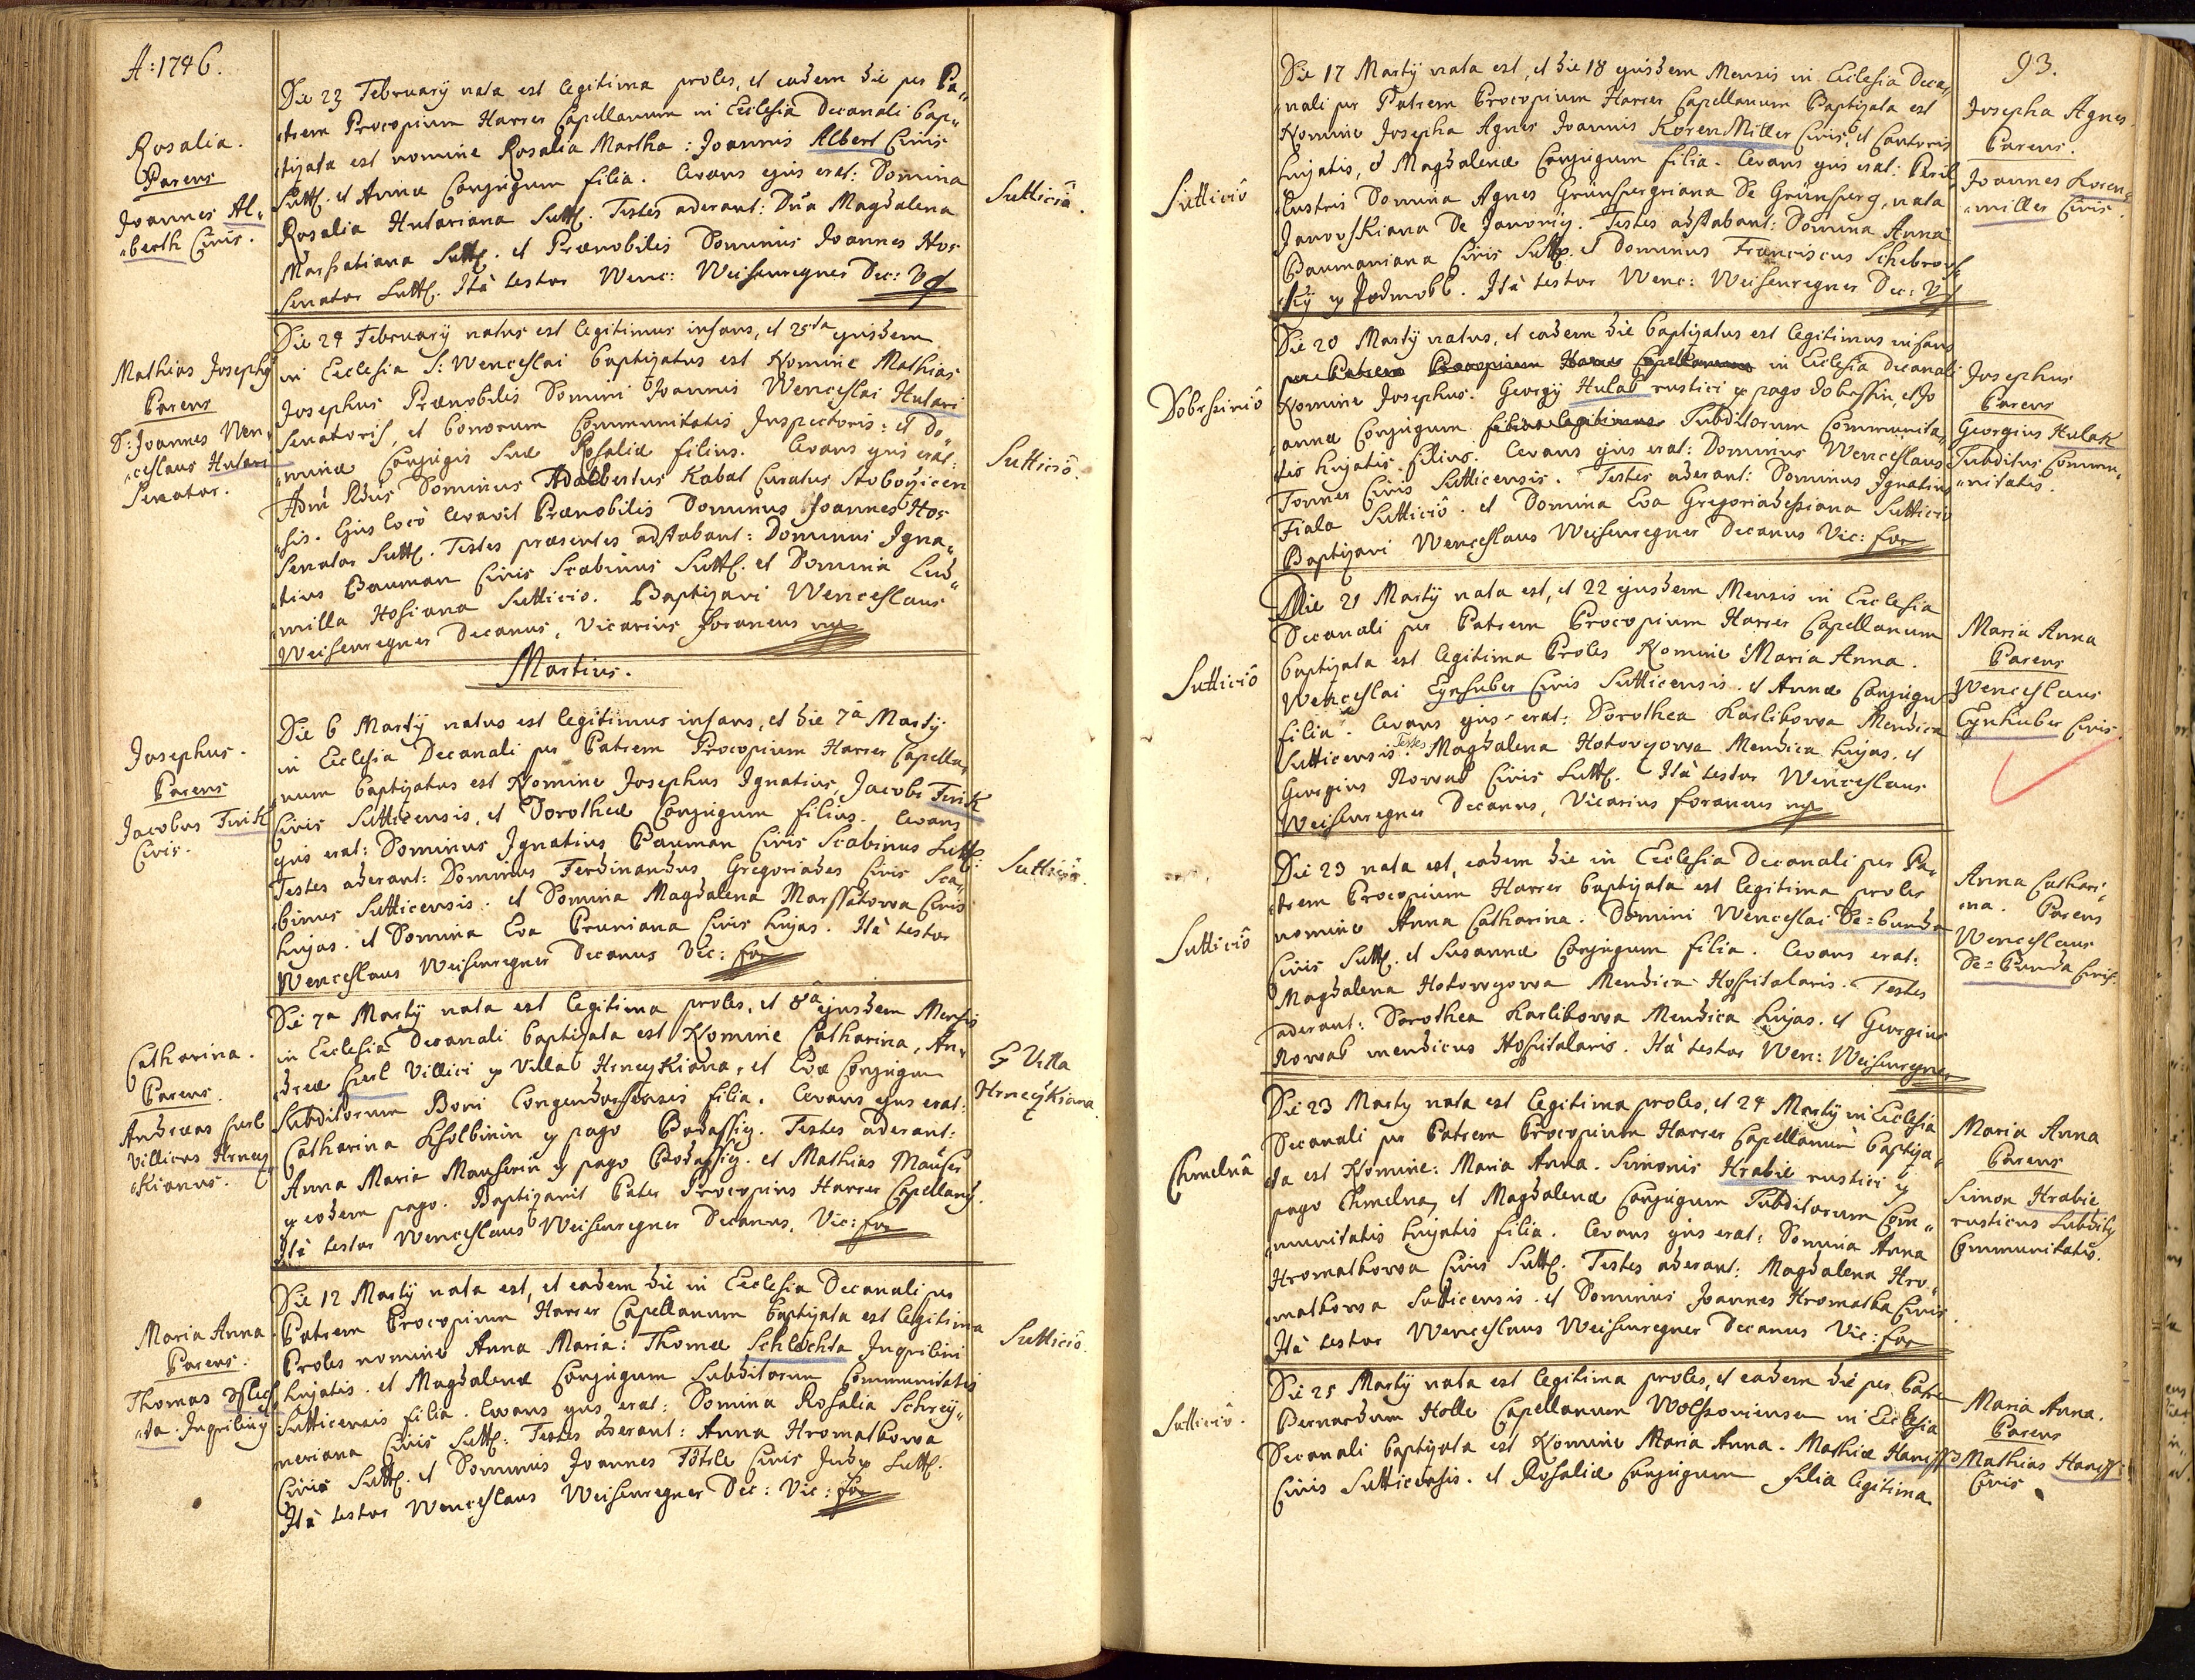 A: 1746.
Rosalia.
Parens
Joannes Al„
„berth Civis.
Die 23 February nata est legitima proles, et eadem die per Pa„
„trem Procopium Harrer Capellanum in Ecclesia Decanali bap„
„tizata est nomine Rosalia Martha: Joannis Albert Civis
Sutt. et Annæ Conjugum filia. Levans ejus erat: Domina
Rosalia Hutariana Sutt. Testes aderant: Dña Magdalena
Marssatiana Sutt. et Prænobilis Dominus Joannes Hos
Senator Sutt. Ità testor Wenc: Weisenregner Dec: Vf
Sutticiô.
Mathias Josephg
Parens
D: Joannes Wen„
„ceslaus Hutari
Senator.
Die 24 February natus est legitimus infans, et 25ta ejusdem
in Ecclesia S: Wenceslai baptizatus est Nomine Mathias
Josephus Prænobilis Domini Joannis Wenceslai Hutari
Senatoris, et bonorum Communitatis Inspectoris: et Do„
„minæ Conjugis Suæ Rosaliæ filius. Levans ejus erat:
Adm̃ Rdus Dominus Adalbertus Kabat Curatus Stobořicen
„sis. Ejus locô levavit Prænobilis Dominus Joannes Hos
Senator Sutt. Testes præsentes adstabant: Dominus Igna„
„tius Bauman Civis Scabinus Sutt. et Domina Lud„
„milla Hosiana Sutticio. Baptizavi Wenceslaus
Weisenregner Decanus, Vicarius foraneus mp
Sutticiô.
Martius.
Josephus.
Parens
Jacobus Firik
Civis.
Die 6 Marty natus est legitimus infans, et die 7â Marty
in Ecclesia Decanali per Patrem Procopium Harrer Capella„
„num baptizatus est Nomine Josephus Ignatius, Jacobi Firik
Civis Sutticensis, et Dorotheæ Conjugum filius. Levans
ejus erat: Dominus Ignatius Bauman Civis Scabinus Sutt:
Testes aderant: Dominus Ferdinandus Gregoriades Civis Sca„
„binus Sutticensis. et Domina Magdalena Marssatowa Civis
hujas. et Domina Eva Pruniana Civis hujas. Ità testor
Wenceslaus Weisenregner Decanus Vic: for
Sutticiô.
Catharina.
Parens.
Andreas Curl
Villicus Hrney
„kianus.
Die 7a Marty nata est legitima proles, et 8â ejusdem Mensis
in Ecclesia Decanali baptizata est Nomine Catharina, An„
„dreæ Curl Villici ex Villa Hrneykiana, et Evæ Conjugum
Subditorum Boni Longendorffensis filia. Levans ejus erat:
Catharina Kholbinin ex pago Podassig. Testes aderant:
Anna Maria Mauserin ex pago Podassig. et Mathias Mauser
ex eodem pago. Baptizavit Pater Procopius Harrer Capellang.
Ità testor Wenceslaus Weisenregner Decanus, Vic: for
Ex Villa
Hrneykiana
Maria Anna
Parens:
Thomas Sslech„
„ta. Inquiling
Die 12 Marty nata est, et eadem die in Ecclesia Decanali per
Patrem Procopium Harrer Capellanum baptizata est legitima
Proles nomine Anna Maria: Thomæ Schlechta Inquilini
hujatis. et Magdalenæ Conjugum Subditorum Communitatis
Sutticensis filia. Levans ejus erat: Domina Rosalia Schrey„
neriana Civis Sutt: Testes aderant: Anna Hromatkowa
Civis Sutt. et Dominus Joannes Tötsle Civis Judex Sutt.
Ità testor Wenceslaus Weisenregner Dec: Vic: for
Sutticiô.
93.
Sutticiô
Die 17 Marty nata est, et die 18 ejusdem Mensis in Ecclesia Deca„
„nali per Patrem Procopium Harrer Capellanum Baptizata est
Nomine Josepha Agnes Joannis KorenMiller Civis, et Cantoris
hujatis, et Magdalenæ Conjugum filia. Levans ejus erat: Peril„
lustris Domina Agnes Grünbergriana De Grünberg, nata
Janovskiana De Janovig. Testes adstabant: Domina Anna
Baumaniana Civis Sutt. et Dominus Franciscus Schebrows„
„ky ex Podmokl. Ità testor Wenc: Weisenregner Dec: Vf
Josepha Agnes.
Parens.
Joannes Koren„
„miller Civis.
Dobrssiniô
Die 20 Marty natus, et eadem die baptizatus est legitimus infans
per Patrem Procopium Harrer Capellanum in Ecclesia Decanali
Nomine Josephus: Georgy Hulak rustici ex pago Dobrssin, et Jo
„annæ Conjugum filius legitimus Subditorum Communita„
tis hujatis filius. Levans ejus erat: Dominus Wenceslaus
Tonner Civis Sutticensis. Testes aderant: Dominus Ignatius
Fiala Sutticiô. et Domina Eva Gregoriadesiana Sutticio
Baptizavi Wenceslaus Weisenregner Decanus Vic: for
Josephus
Parens
Georgius Hulak
Subditus Commu„
„nitatis.
Sutticiô
Die 21 Marty nata est, et 22 ejusdem Mensis in Ecclesia
Decanali per Patrem Procopium Harrer Capellanum
baptizata est legitima Proles Nomine Maria Anna.
Wenceslai Eynhuber Civis Sutticensis. et Annæ Conjugum
filia. Levans ejus erat: Dorothea Karlikowa Mendica
Sutticensis Testes Magdalena Hotovyowa Mendica hujas. et
Georgius Nowak Civis Sutt. Ità testor Wenceslaus
Weisenregner Decanus, Vicarius foraneus mp
Maria Anna
Parens
Wenceslaus
Eynhuber Civis
Sutticiô
Die 23 nata est, eadem die in Ecclesia Decanali per Pa„
„trem Procopium Harrer baptizata est legitima proles
nomine Anna Catharina. Domini Wenceslai De=bunda
Civis Sutt. et Susannæ Conjugum filia. Levans erat:
Magdalena Hotowyowa Mendica Hospitalaris. Testes
aderant: Dorothea Karlikowa Mendica hujas. et Georgius
Nowak mendicus Hospitalaris. Ità testor Wen: Weisenregner
Anna Cathari„
„na. Parens
Wenceslaus
De=Bunda Civis.
Chmelnâ
Die 23 Marty nata est legitima proles, et 24 Marty in Ecclesia
Decanali per Patrem Procopium Harrer Capellanum baptiza„
„ta est Nomine: Maria Anna. Simonis Hrabie rustici ex
pago Chmelna, et Magdalenæ Conjugum Subditorum Com„
„munitatis hujatis filia. Levans ejus erat: Domina Anna
Hromatkowa Civis Sutt. Testes aderant: Magdalena Hro„
„matkowa Sutticensis. et Dominus Joannes Hromatka Civis.
Ità testor Wenceslaus Weisenregner Decanus Vic: for
Maria Anna
Parens
Simon Hrabie
rusticus Subditg
Communitatis.
Sutticiô.
Die 25 Marty nata est legitima proles, et eadem die per Patre
Bernardum Holle Capellanum Wolssoviensem in Ecclesia
Decanali baptizata est Nomine Maria Anna. Mathiæ Haniss
Civis Sutticensis. et Rosaliæ Conjugum filia legitima.
Maria Anna.
Parens
Mathias Haniss
Civis